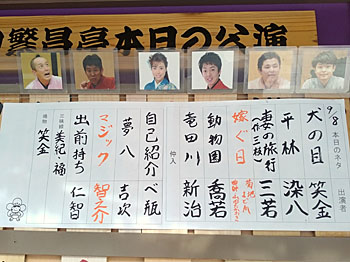 繁昌亭本日の公演
9/8 本日のネタ 出演者
犬の目 笑金
平林 染八
妻の旅行 三若
(作 三枝)
嫁ぐ日
動物園 喬若
竜田川 新治
仲入
自己紹介 べ瓶
夢八 吉次
マジック 智之介
出前持ち 仁智
三味線 美紀・福
鳴物 笑金